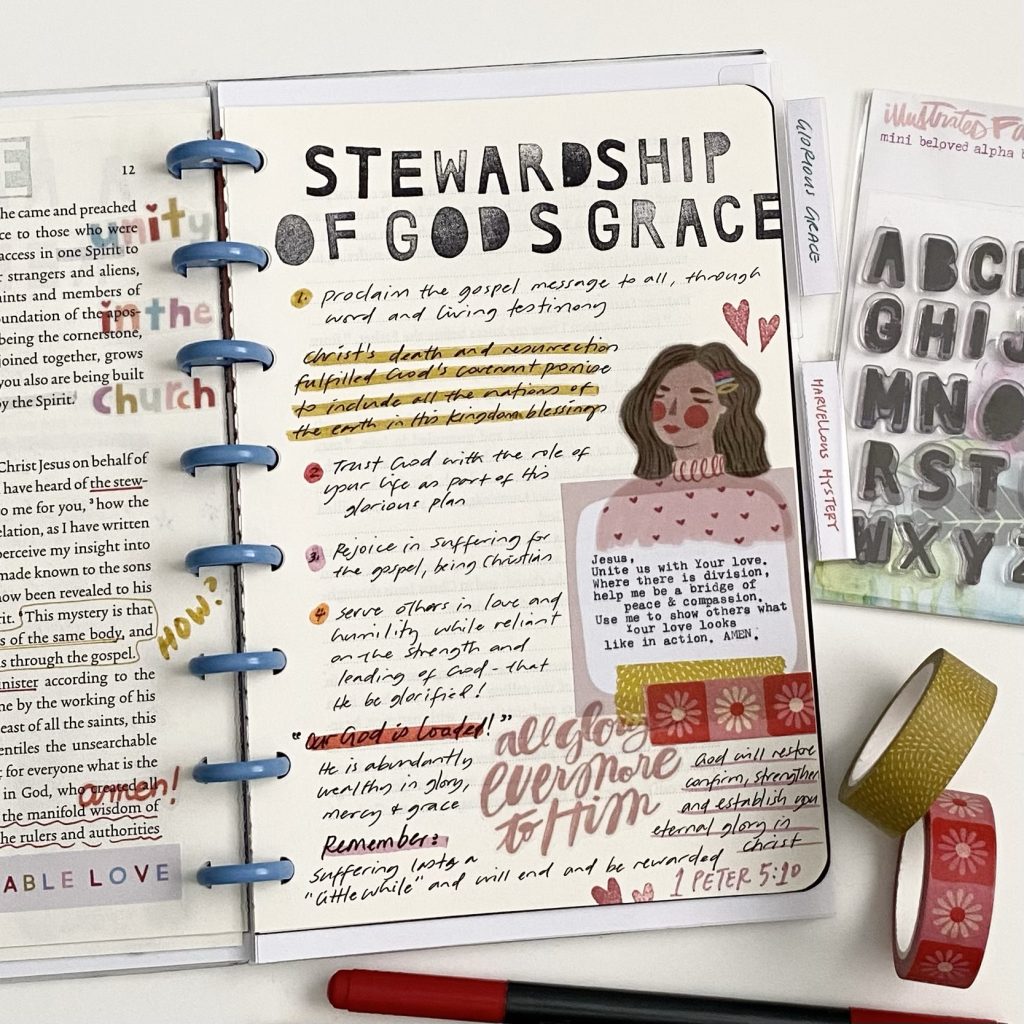 E
12
he came and preached
ce to those who were
access in one Spirit to
strangers and aliens,
ints and members of
oundation of the apos-
being the cornerstone,
joined together, grows
you also are being built
by the Spirit.
unity
in the
church
Christ Jesus on behalf of
have heard of the stew-
to me for you, ³how the
elation, as I have written
perceive my insight into
made known to the sons
now been revealed to his
rit. This mystery is that
s of the same body, and
s through the gospel.
HOW?
nister according to the
me by the working of his
east of all the saints, this
entiles the unsearchable
for everyone what is the
in God, who created all
the manifold wisdom of
he rulers and authorities
amen!
ABLE LOVE
STEWARDSHIP
OF GODS GRACE
1. Proclaim the gospel message to all, through
word and living testimony
Christ's death and resurrection
fulfilled God's covenant promise
to include all the nations of
the earth in His kingdom blessings
2 Trust God with the role of
your life as part of his
glorious plan
3. Rejoice in suffering for
the gospel, being Christian
4 Serve others in love and
humility while reliant
on the strength and
leading of God - that
He be glorified!
"Our God is loaded!"
He is abundantly
wealthy in glory,
mercy + grace
Remember:
Suffering lasts a
"little while" and will end and be rewarded
Jesus,
Unite us with Your love.
Where there is division,
help me be a bridge of
peace & compassion.
Use me to show others what
Your love looks
like in action. AMEN.
all glory
evermore
to Him
God will restore
confirm, strengthen
and establish you
eternal glory in
christ
1 PETER 5:10
GLORIOUS GRACE
MARVELLOUS MYSTERY
illustrated Fa
mini beloved alpha
ABC
GHIJ
MNO
RST
WXYZ